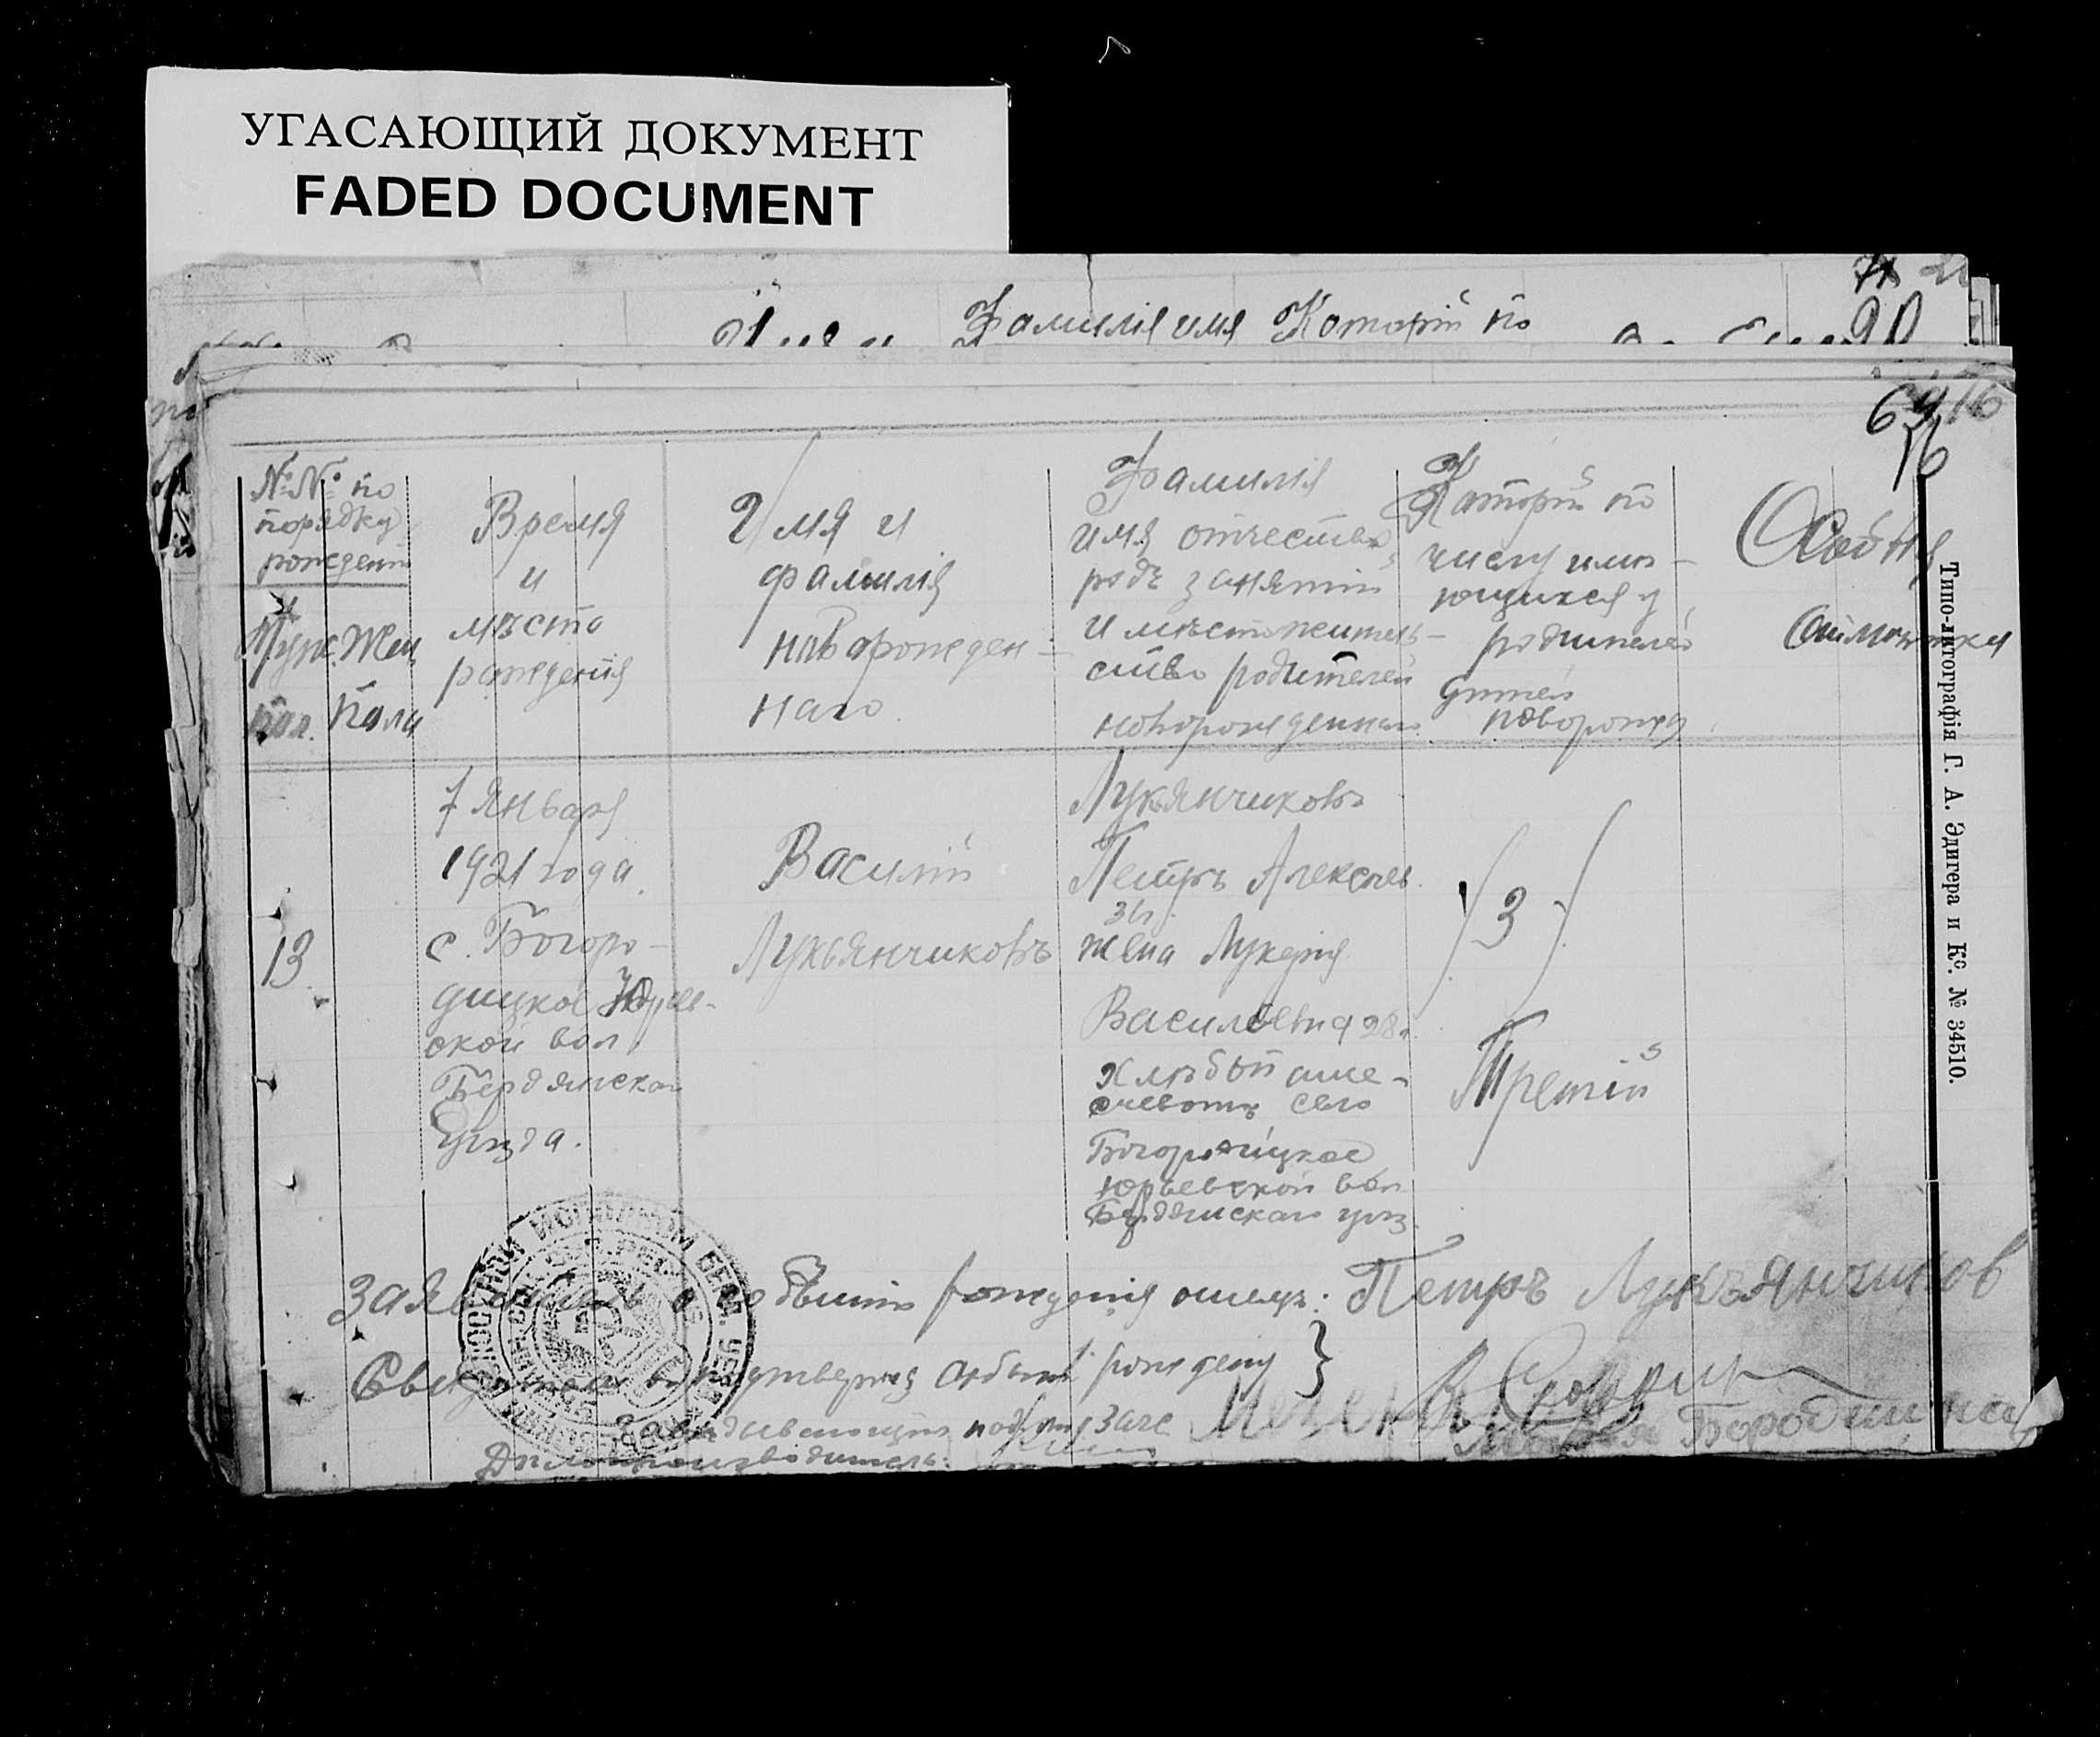 УГАСАЮЩИЙ ДОКУМЕНТ
FADED DOCUMENT
Фамилія имя Которій по
90
69 76
76
№№ по
порядку
рожденій
Муж. Жен
пол. Пола
Время
и
мѣсто
рожденія
Имя и
фамилія
новорожден-
наго
Фамилія
имя отчество
родъ занятій
и мѣстожитель-
ство родителей
новорожденнаго
Которій по
числу имѣ-
ющихся у
родителей
дѣтей
новорожд
Особыя
13
7 Января
1921 года.
с. Богоро-
дицкое Юрьев-
ской вол
Бердянскаго
уѣзда.
Василій
Лукьянчиковъ
Лукьянчиковъ
Петръ Алексѣев.
36
жена Лукерія
Васильевна 28 л.
Хлѣбопаше-
село
Богородицкое
Юрьевской вол
Бердянскаго уѣз.
3
Третій
о событіи рожденія отецъ: Петръ Лукъянчиков
событі рожденія }
Дѣлопроизводитель:
Бородкина
Типо-литографія Г. А. Эдигера и К°. № 34510.